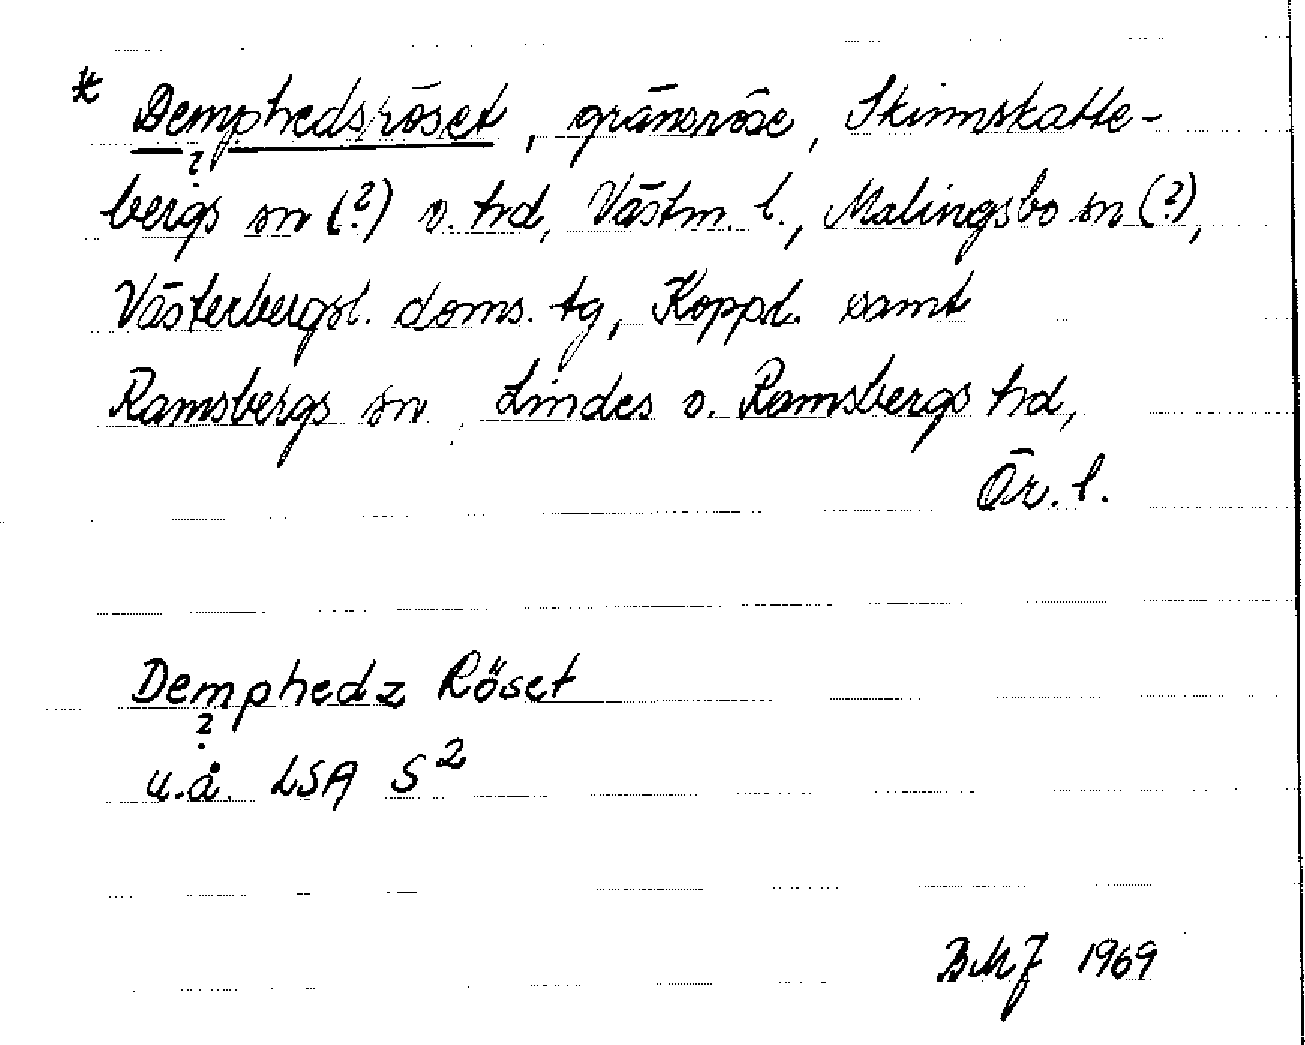 * Demphedsröset, gränsröse, Skinnskatte-
?
bergs sn (?) o. hd, Västm. l., Malingsbo sn (?),
Västerbergsl. doms. tg, Koppl. samt
Ramsbergs sn, Lindes o. Ramsbergs hd,
Ör. l.
Demphedz Röset
?
u.å. LSA S²
BMJ 1969